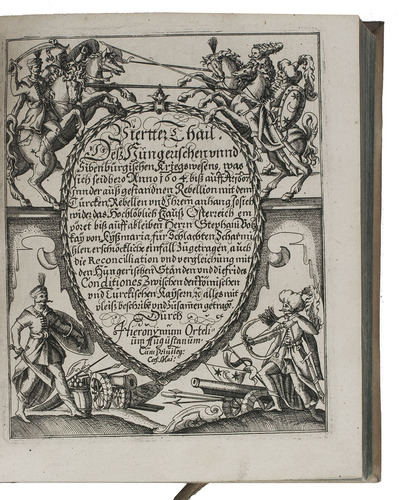 Viertter Thail.
Deß Hungerischen vnnd
Sibenbürgischen Kriegswesens, was
sich seidhero Anno 1604. biß auff
inn der auß gestandnen Rebellion mit dem
Türcken, Rebellen vnd Ihrem anhang so sich
wider das Hochlöblich Hauß Osterreich em
pöret biß auff ableiben Herrn Stephani Bot
kay von Kyßmaria, für Schlachten, Scharmü
tzlen, einfäll zugetragen, auch
die Reconciliation vnd vergleichung mit
den Hungerischen Ständen vnd die frides
Conditiones Zwischen dem Römischen
vnd Türckischen Kaysern, alles mit
vleiß beschribe vnd zusamen getrage.
Durch
Hieronÿmum Orteli-
um Augustanum.
Cum Privileg:
Cæs. Mai: